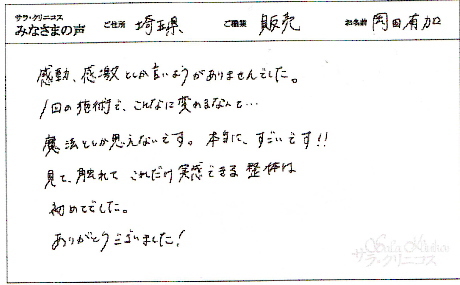 サラ・クリニコス
みなさまの声 ご住所 埼玉県 ご職業 販売 お名前 岡田有加
感動、感激としか言いようがありませんでした。
1回の施術で、こんなに変わるなんて…
魔法としか思えないです。本当に、すごいです!!
見て、触れて これだけ実感できる 整体は
初めてでした。
ありがとうございました!
Sala Klinikos
サラ・クリニコス